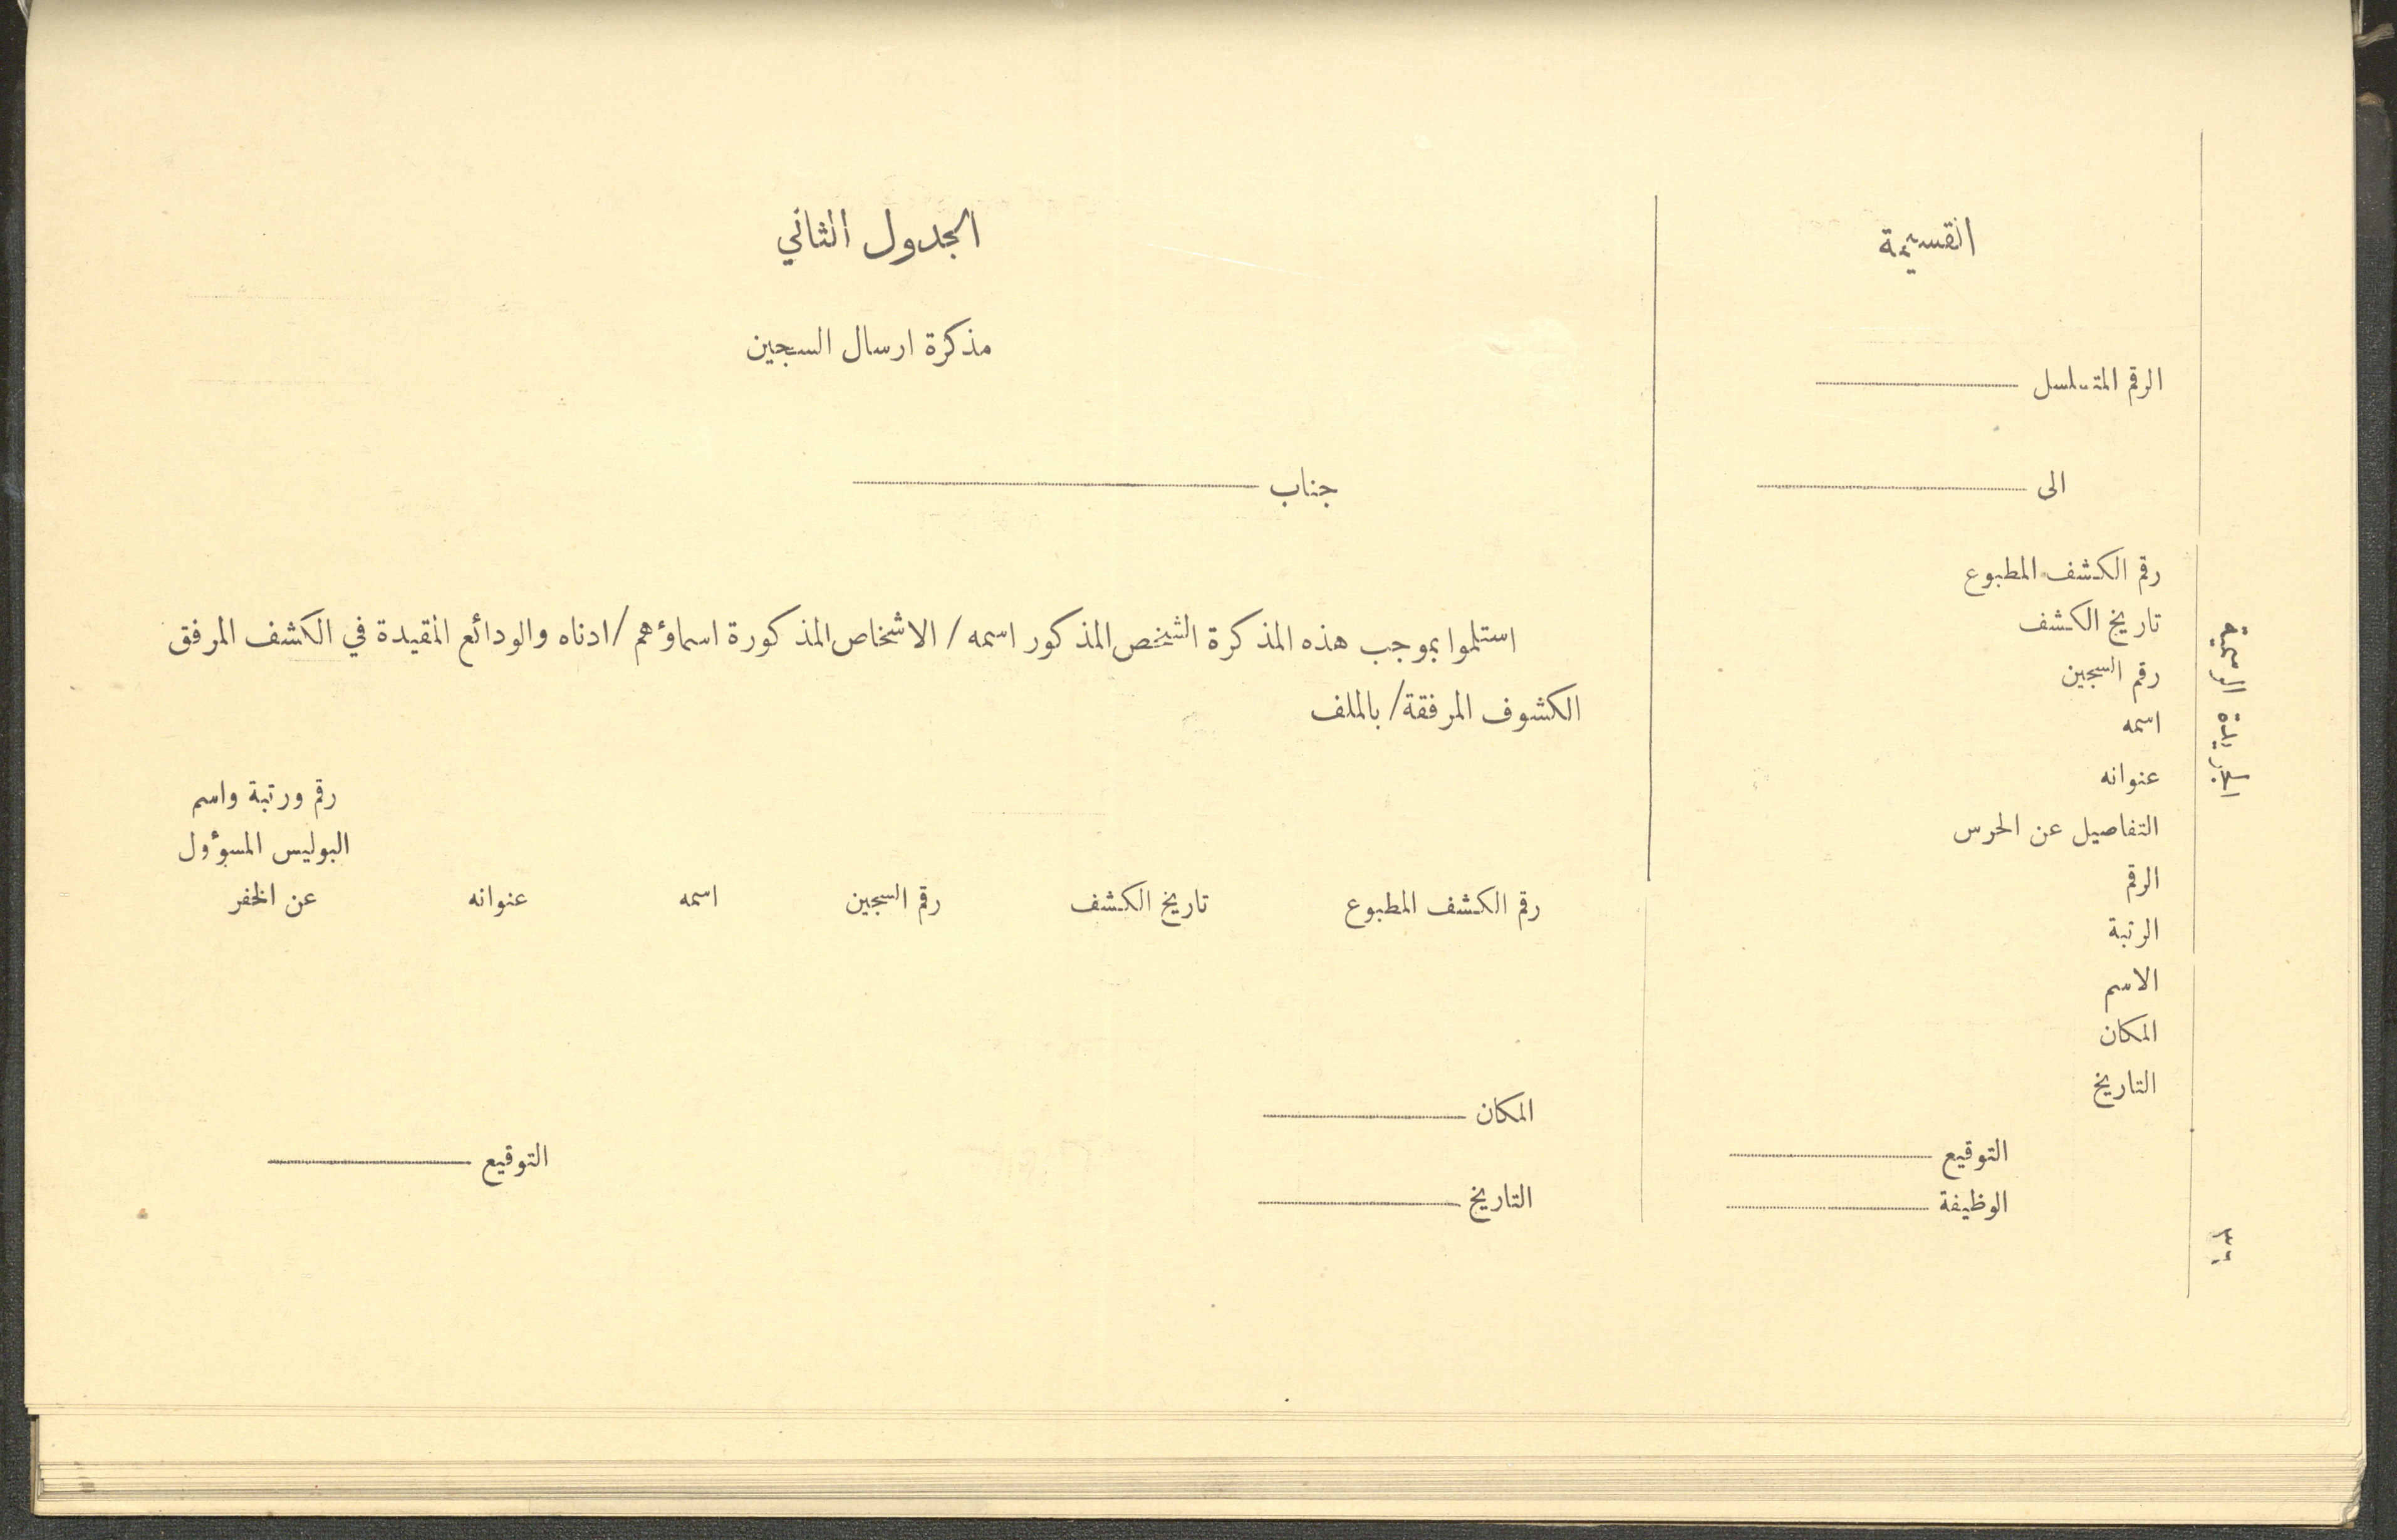 الجريدة الرسمية
القسيمة
الرقم المتسلسل
الى
رقم الكشف المطبوع
تاريخ الكشف
رقم السجين
اسمه
عنوانه
التفاصيل عن الحرس
الرقم
الرتبة
الاسم
المكان
التاريخ
التوقيع
الوظيفة
الجدول الثاني
مذكرة ارسال السجين
جناب
استلموا بموجب هذه المذكرة الشخص المذكور اسمه / الاشخاص المذكورة اسماؤهم / ادناه والودائع المقيدة في الكشف المرفق
الكشوف المرفقة / بالملف
رقم الكشف المطبوع تاريخ الكشف رقم السجين اسمه عنوانه رقم ورتبة واسم
البوليس المسؤول
عن الخفر
المكان
التاريخ
التوقيع